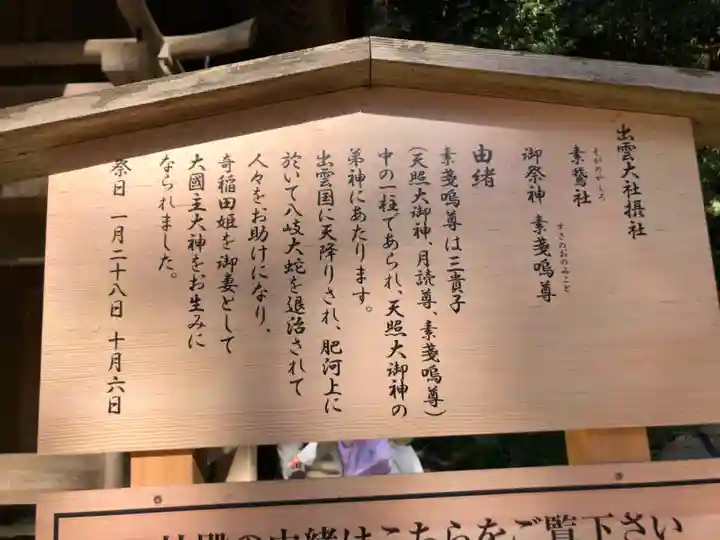 出雲大社摂社
素鵞社
そがのやしろ
御祭神 素戔嗚尊
すさのおのみこと
由緒
素戔嗚尊は三貴子
(天照大御神、月読尊、素戔嗚尊)
中の一柱であられ、天照大御神の
弟神にあたります。
出雲国に天降りされ、肥河上に
於いて八岐大蛇を退治されて
人々をお助けになり、
奇稲田姫を御妻として
大國主大神をお生みに
なられました。
祭日 一月二十八日 十月六日
の由緒はこちらをご覧下さい